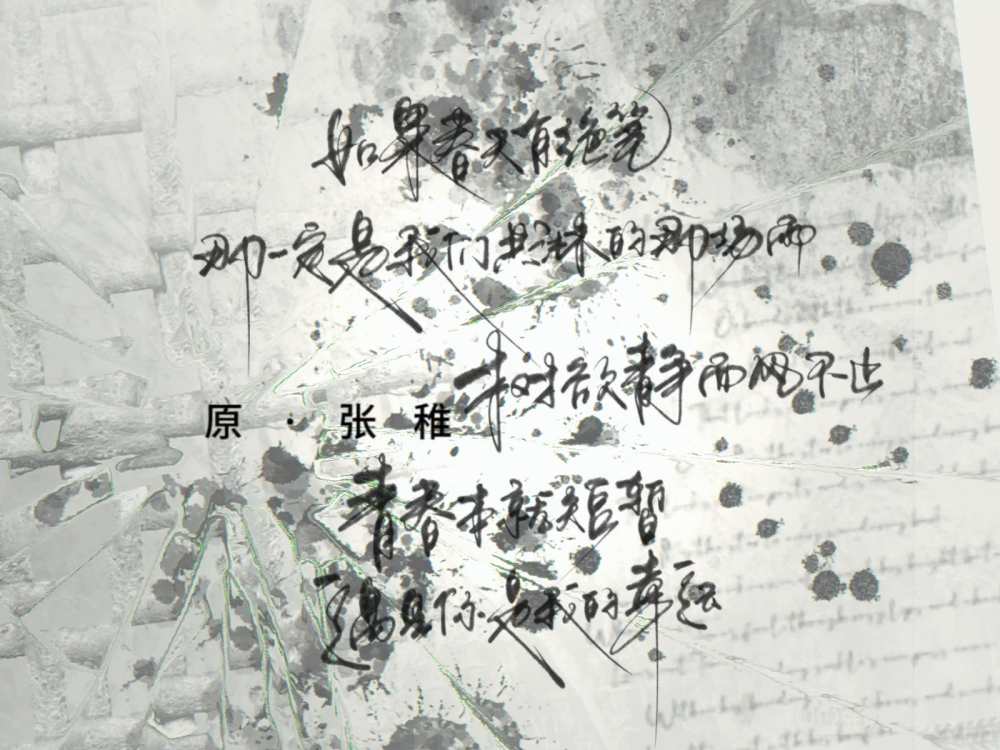 如果春天有绝笔
那一定是我们共淋的那场雨
树欲静而风不止
原·张稚
青春本就短暂
遇见你是我的幸运